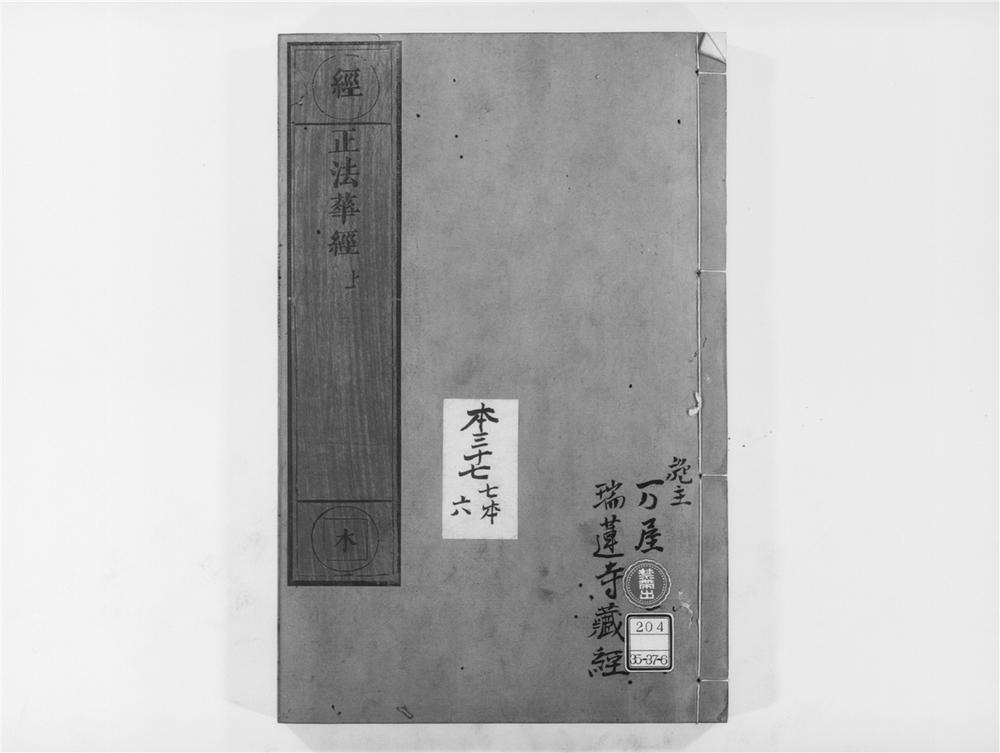 經
正法華經 上
木
本三十七 七本
六
施主
万屋
瑞蓮寺藏經
禁帶出
204
35-37-6